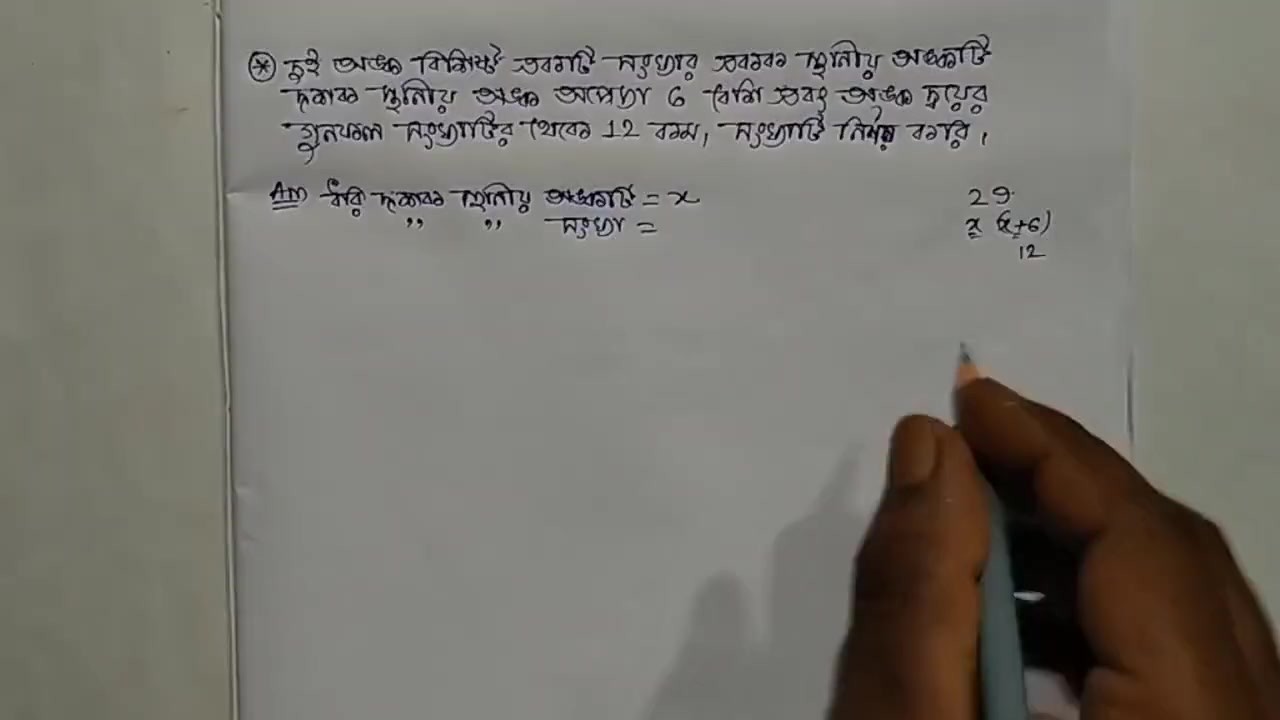 * দুই অঙ্ক বিশিষ্ট একটি সংখ্যার একক স্থানীয় অঙ্কটি
দশক স্থানীয় অঙ্ক অপেক্ষা 6 বেশি এবং অঙ্ক দ্বয়ের
গুনফল সংখ্যাটির থেকে 12 কম, সংখ্যাটি নির্ণয় করি।
Ans ধরি দশক স্থানীয় অঙ্কটি = x
,, ,, সংখ্যা =
29
x (x+6)
12